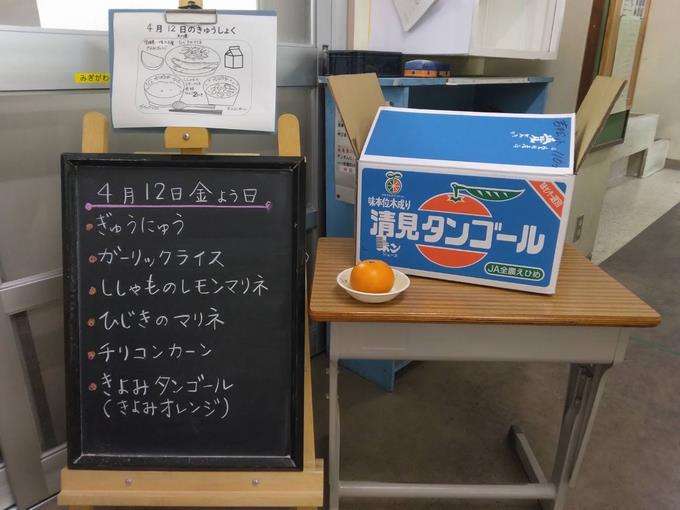 4月12日のきゅうしょく
みぎがわ
4月12日金よう日
ぎゅうにゅう
ガーリックライス
ししゃものレモンマリネ
ひじきのマリネ
チリコンカーン
きよみタンゴール
(きよみオレンジ)
味本位木成り
清見タンゴール
JA全農えひめ